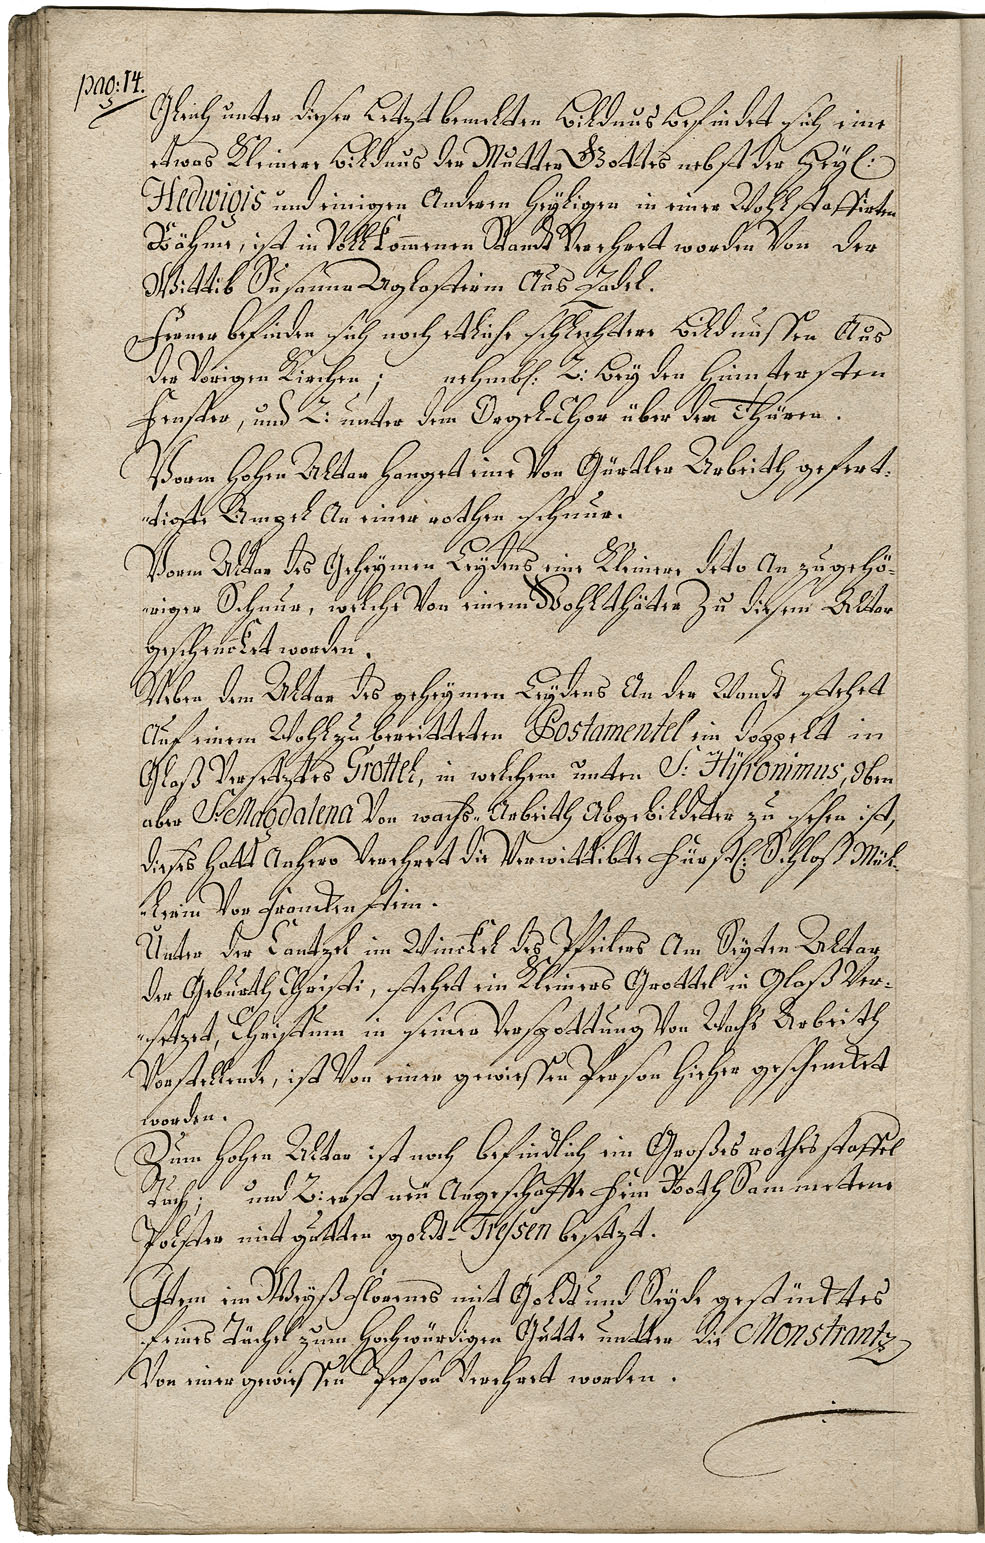 pag: 14.
Gleich unter dieser Letzt bemelten Bildnus befindet sich eine
etwas Kleinere Bildnus der Mutter Gottes nebst der Heyl:
Hedwigis und einigen Anderen Heyligen in einer Wohl staffirten
Rähme, ist in Vollkommenen Standt Verehret worden Von der
Wittib Susanna Aus Zadel.
Ferner befinden sich noch etliche schlechtere Bildnussen Aus
der Vorigen Kirchen; nehmbl: 2: bey den Hintersten
Fenster, und 2: unter dem Orgel-Chor über der Thüren.
Vorm Hohen Altar hanget eine Von Gürtler Arbeith gefert-
-tigte Ampel An einer rothen schnur.
Vorm Altar des Geheymen Leydens eine Kleinere deto An zugehö-
-riger Schnur, welche Von einem Wohlthäter zu diesem Altar
geschencket worden.
Neben dem Altar des geheymen Leydens An der Wandt stehet
Auf einem Wohl zubereitteten Postamentel ein doppelt in
Glaß Versetztes Grottel, in welchem unten S: Hÿronimus, oben
aber S: Magdalena Von wachs-Arbeith Abgebildeter zu sehen ist,
dieses hatt Anhero Verehret die Verwittibte Fürstl: Schloß Mül-
-lerin Von Franckenstein.
Unter der Cantzel im Winckel des Pfeilers Am Seyten Altar
der Geburth Christi, stehet ein Kleineres Grottel in Glaß Ver-
-setzet, Christum in seiner Verspottung Von Wachs Arbeith
Vorstellende, ist Von einer gewiessen Person hieher geschencket
worden.
Zum Hohen Altar ist noch befindlich ein Großes rothes staffel
Tuch; und 2: erst neü Angeschaffte fein Roth Sammettene
Polster mit gutten goldt-Tressen besetzt.
Item ein Weyß florenes mit Goldt und Seyde gestücktes
feines Tüchel zum Hochwürdigen Gutte untter die Monstrantz
Von einer gewiessen Person Verehret worden.